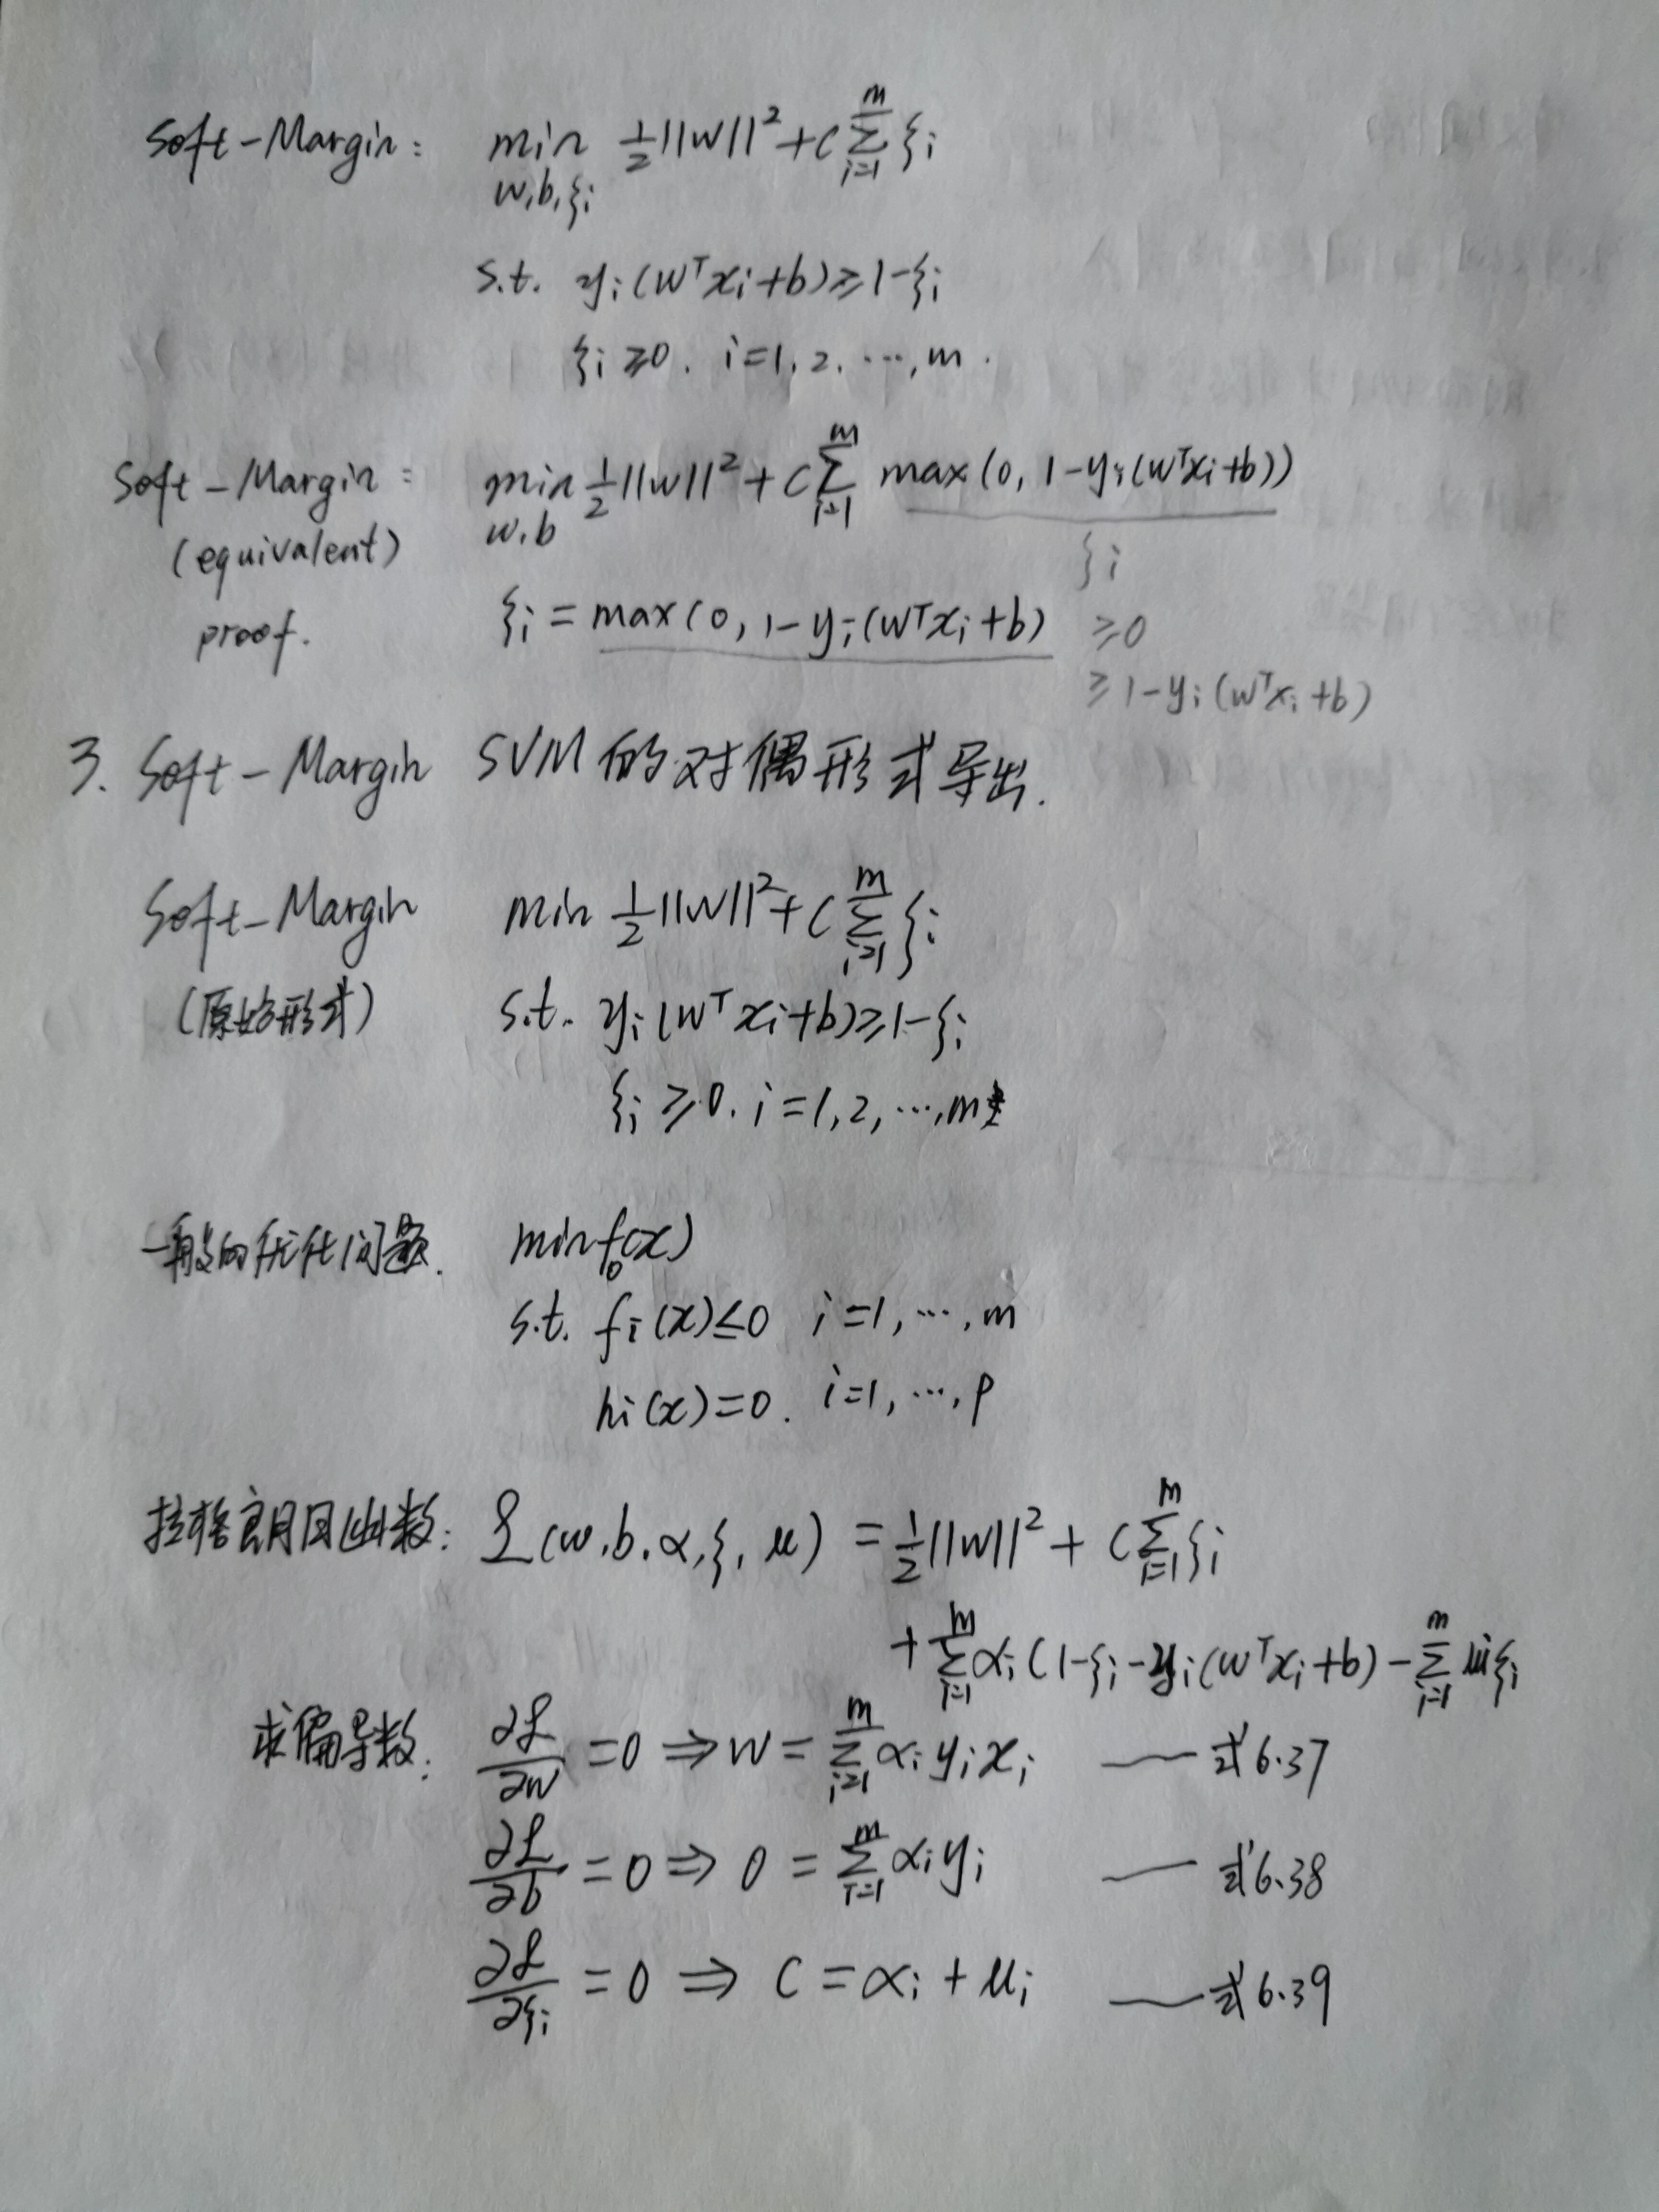 Soft-Margin: min 1/2||w||² + C∑_{i=1}^{m} ξi
w,b,ξi
s.t. yi(wᵀxi+b)≥1-ξi
ξi≥0. i=1,2,⋯,m.
Soft-Margin: min 1/2||w||² + C∑_{i=1}^{m} max(0, 1-yi(wᵀxi+b))
w,b
(equivalent) ξi
proof. ξi = max(0, 1-yi(wᵀxi+b) ≥0
≥1-yi(wᵀxi+b)
3. Soft-Margin SVM的对偶形式导出.
Soft-Margin min 1/2||w||²+C∑_{i=1}^{m} ξi
(原始形式) s.t. yi(wᵀxi+b)≥1-ξi
ξi≥0. i=1,2,⋯,m
一般的优化问题. min f₀(x)
s.t. fi(x)≤0 i=1,⋯,m
hi(x)=0. i=1,⋯,p
拉格朗日函数: ℒ(w.b.α,ξ,μ) = 1/2||w||² + C∑_{i=1}^{m} ξi
+∑_{i=1}^{m} αi(1-ξi-yi(wᵀxi+b)-∑_{i=1}^{m} μiξi
求偏导数: ∂ℒ/∂w =0 ⇒ w=∑_{i=1}^{m} αi yi xi —— 式6.37
∂ℒ/∂b =0 ⇒ 0 =∑_{i=1}^{m} αi yi —— 式6.38
∂ℒ/∂ξi =0 ⇒ C=αi+μi —— 式6.39